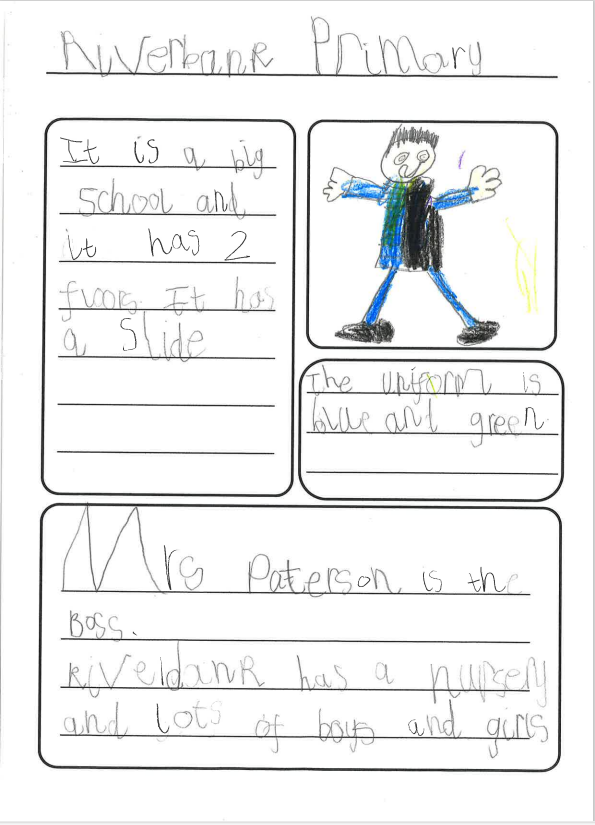 Riverbank Primary
It is a big
school and
it has 2
floors. It has
a Slide
The uniform is
blue and green.
Mrs Paterson is the
Boss.
Riverbank has a nursery
and lots of boys and girls